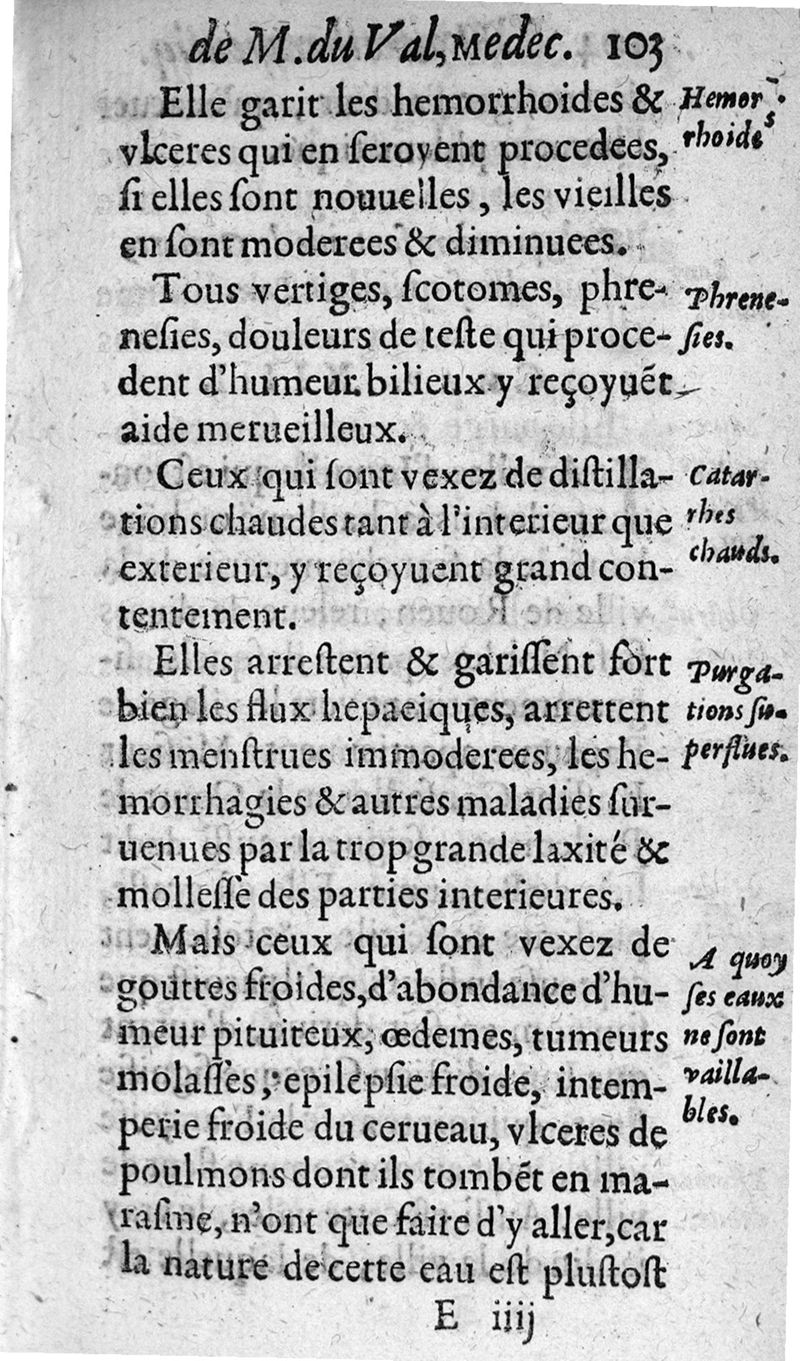 de M. du Val, Medec. 103
Elle garit les hemorrhoides &
vlceres qui en ſeroyent procedees,
ſi elles ſont nouuelles, les vieilles
en ſont moderees & diminuees.
Hemor
rhoides
Tous vertiges, ſcotomes, phre-
neſies, douleurs de teſte qui proce-
dent d'humeur bilieux y reçoyuẽt
aide merueilleux.
Phrene-
ſies.
Ceux qui ſont vexez de diſtilla-
tions chaudes tant à l'interieur que
exterieur, y reçoyuent grand con-
tentement.
Catar-
rhes
chauds.
Elles arreſtent & gariſſent fort
bien les flux hepaeiques, arrettent
les menſtrues immoderees, les he-
morrhagies & autres maladies ſur-
uenues par la trop grande laxité &
molleſſe des parties interieures.
Purga-
tions ſu-
perflues.
Mais ceux qui ſont vexez de
gouttes froides, d'abondance d'hu-
meur pituiteux, œdemes, tumeurs
molaſſes, epilepſie froide, intem-
perie froide du cerueau, vlceres de
poulmons dont ils tombẽt en ma-
raſme, n'ont que faire d'y aller, car
la nature de cette eau eſt pluſtoſt
A quoy
ſes eaux
ne ſont
vailla-
bles.
E iiij